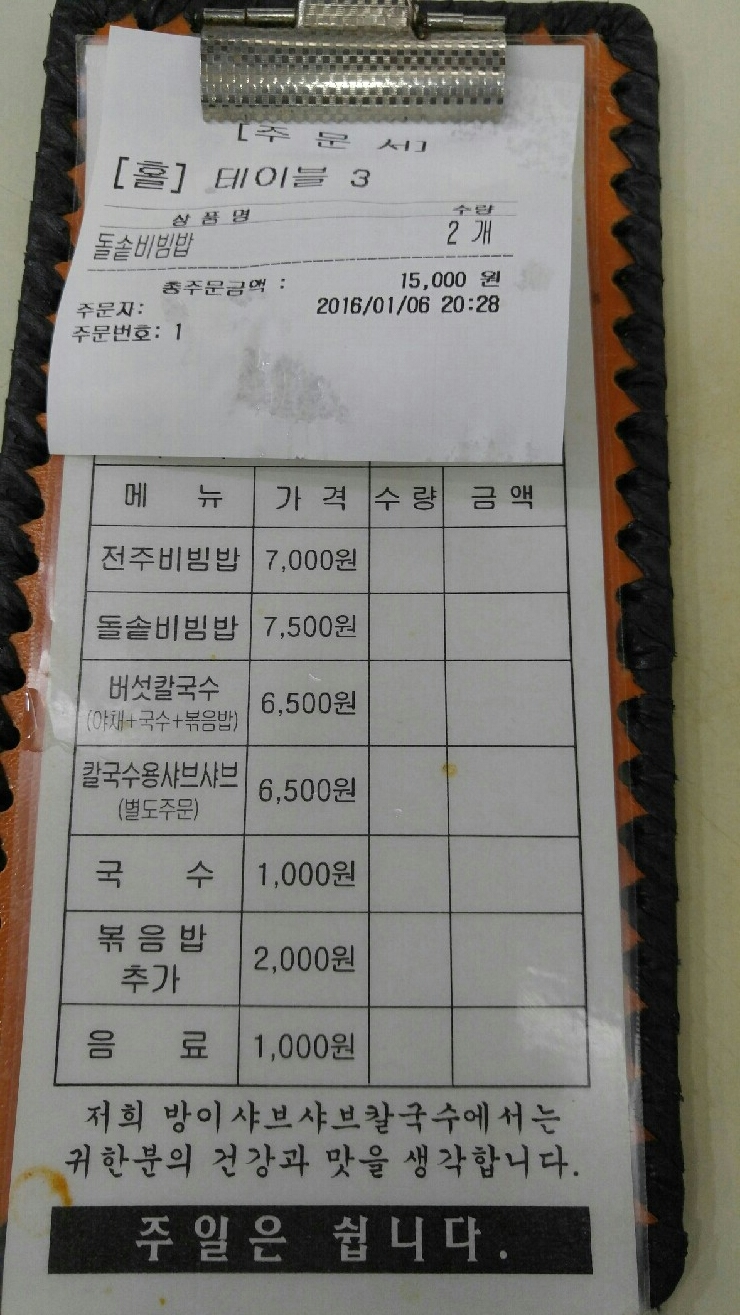 [주 문 서]
[홀] 테이블 3
상 품 명 수량
돌솥비빔밥 2 개
총주문금액 : 15,000 원
주문자: 2016/01/06 20:28
주문번호: 1
메 뉴 가 격 수 량 금 액
전주비빔밥 7,000원
돌솥비빔밥 7,500원
버섯칼국수
(야채+국수+볶음밥) 6,500원
칼국수용샤브샤브
(별도주문) 6,500원
국 수 1,000원
볶 음 밥
추가 2,000원
음 료 1,000원
저희 방이샤브샤브칼국수에서는
귀한분의 건강과 맛을 생각합니다.
주 일 은 쉽 니 다 .